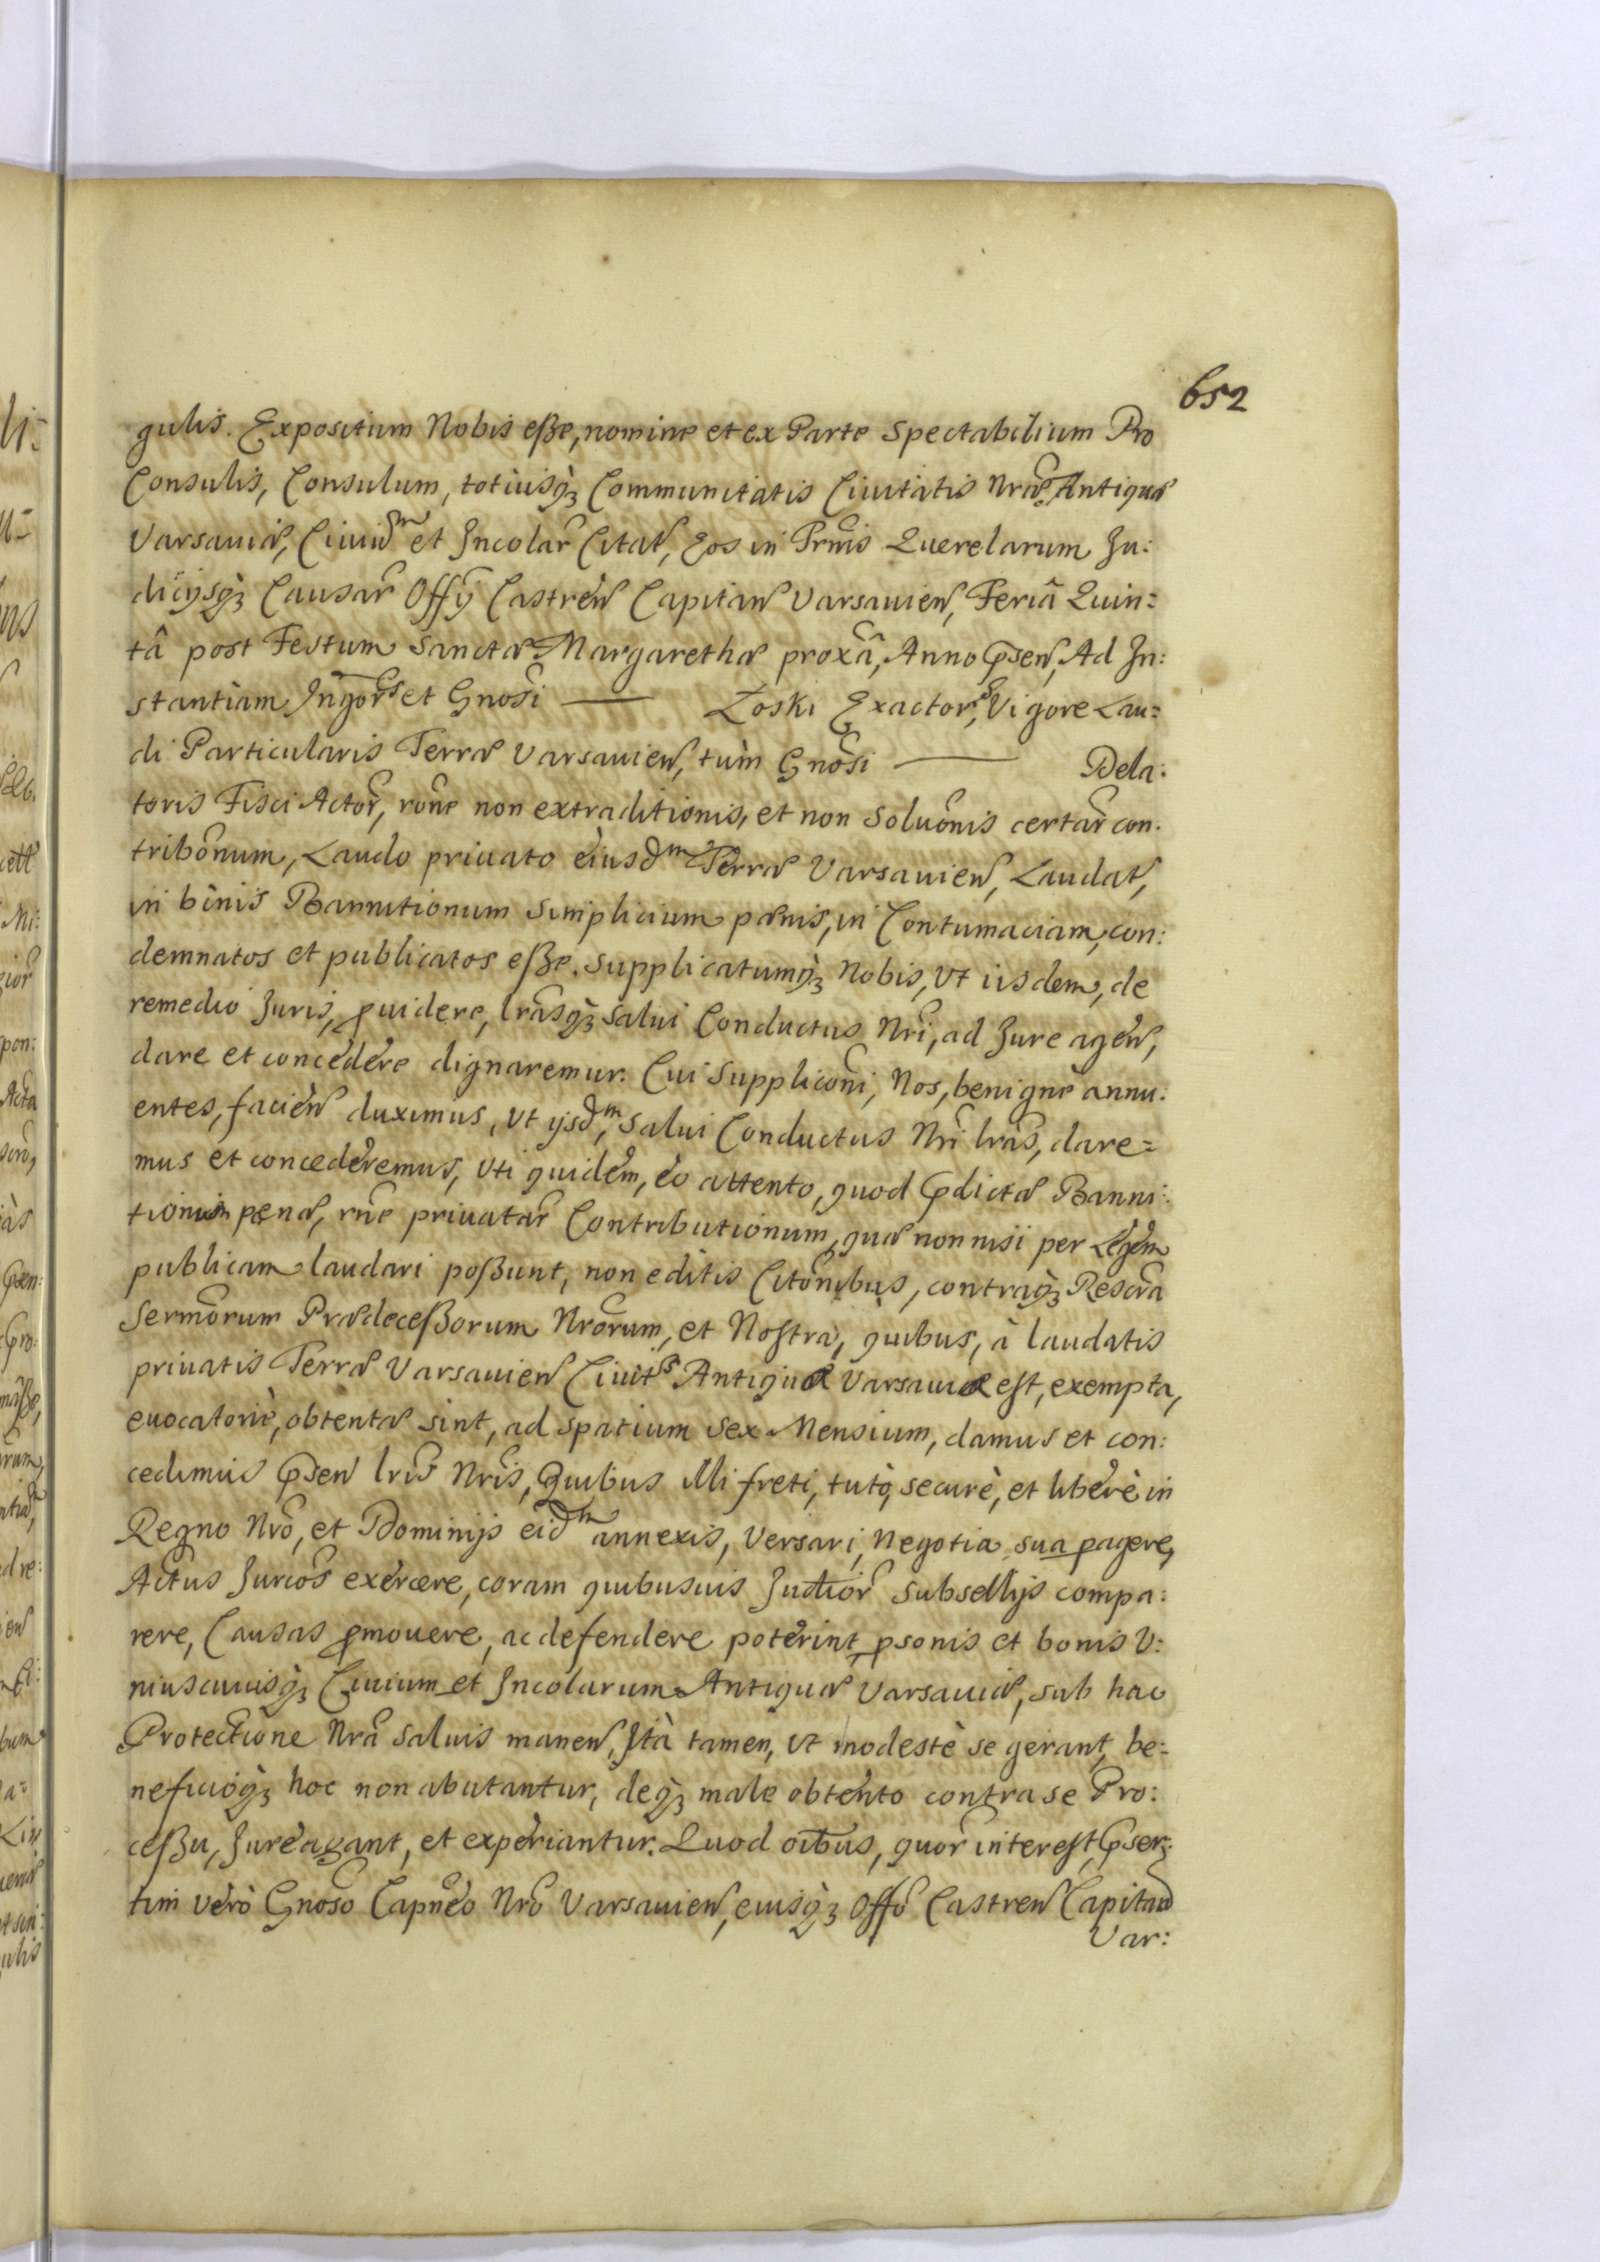 652
gulis. Expositum Nobis eße, nomine et ex Parte Spectabilium Pro
Consulis, Consulum, totiusq3 Communitatis Ciuitatis Nræ Antiquæ
Varsauiæ, Ciuiũm et Incolar Citat, Eos in Prmis Querelarum Iu:
dicijsq3 Causar Offij Castren Capitan Varsauien, Feriâ Quin=
tâ post Festum Sanctæ Margarethæ proxâ, Anno Psen, Ad In:
stantiam Ingoris et Gnosi ——— Łoski Exactoris, Vigore Lau=
di Particularis Terræ Varsauien, tùm Gnosi ——— Dela:
toris Fisci Actor, rone non extraditionis, et non Soluonis certar con.
tribonum, Laudo priuato eiusdm Terræ Varsauien, Laudat,
in binis Bannitionum Simplicium pænis, in Contumaciam, con:
demnatos et publicatos eße. Supplicatumq3 Nobis, Vt iisdem, de
remedio Juris, puidere, lrasq3 Salui Conductus Nri, ad Jure agen,
dare et concedere dignaremur. Cui Suppliconi, Nos, benigne annu:
entes, facien duximus, Vt ijsdm, Salui Conductus Nri lras, dare=
mus et concederemus, Vti quidem, eo attento, quod Pdictæ Banni:
tionum penæ, rne priuatar Contributionum, quæ non nisi per Legem
publicam laudari poßunt, non editis Citonibus, contraq3 Rescra
Sermorum Prædeceßorum Nrorum, et Nostra, quibus, à laudatis
priuatis Terræ Varsauien Ciuits Antiquæ Varsauiæ est, exempta,
euocatoriè, obtentæ sint, ad spatium Sex Mensium, damus et con:
cedimus Psen lris Nris, Quibus illi freti, tutò, securè, et liberè in
Regno Nro, et Dominijs eidm annexis, Versari, Negotia sua pagere,
Actus Jurcos exercere, coram quibusuis Judior Subsellijs compa:
rere, Causas pmouere, ac defendere poterint, psonis et bonis V:
niuscuiusq3 Ciuium et Incolarum Antiquæ Varsauiæ, sub hac
Protectione Nra saluis manen, Ità tamen, Vt modestè se gerant, be=
neficioq3 hoc non abutantur, deq3 male obtento contra se Pro:
ceßu, Jure agant, et experiantur. Quod oibus, quor interest, Pser:
tim verò Gnoso Capneo Nro Varsauien, eiusq3 Offo Castren Capitan
Var: